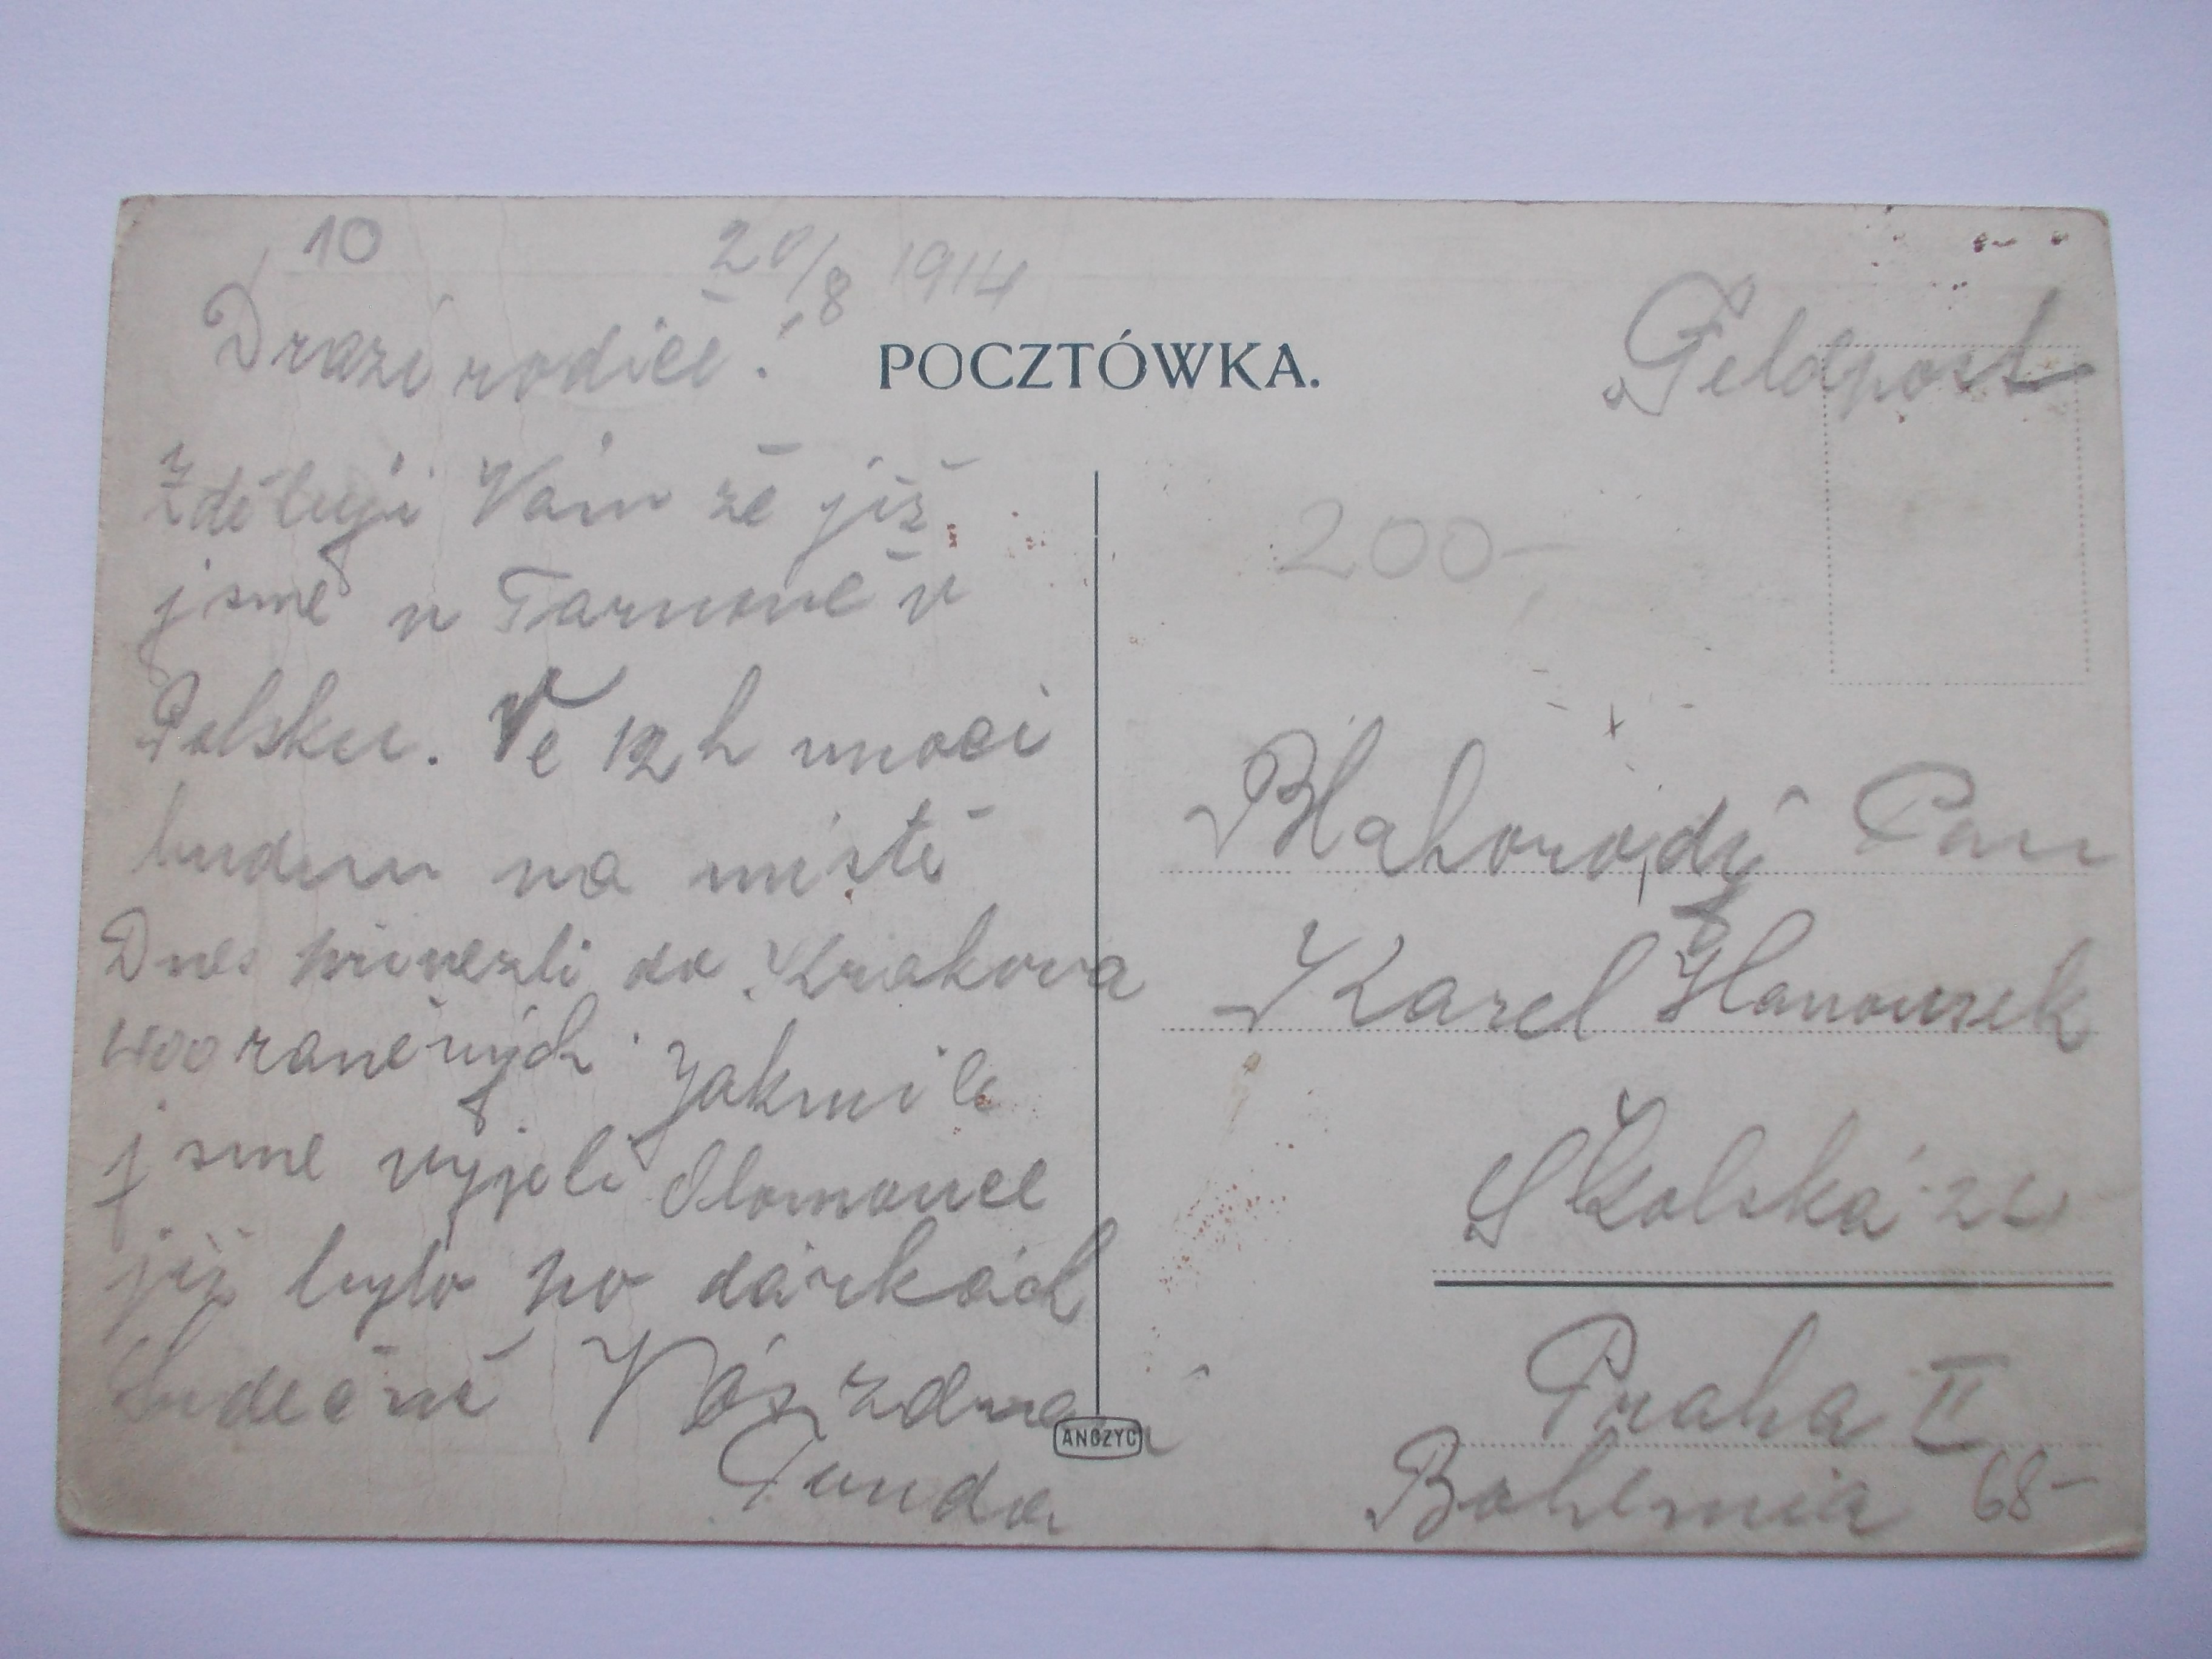 10
20/8 1914
Drazí rodiče!
POCZTÓWKA.
Feldpost
Zděluji Vám že již
jsme v Tarnově v
Polsku. Ve 12 h v noci
budem na místě
Dnes přivezli do Krakova
raněných. Jakmile
jsme vyjeli Olomouce
již bylo po dárkách
Srdečně Vás zdraví
Tunda
ANCZYC
200-
Blahorodý Pan
Karel Hanousek
Školská
Praha II
Bohemia 68-